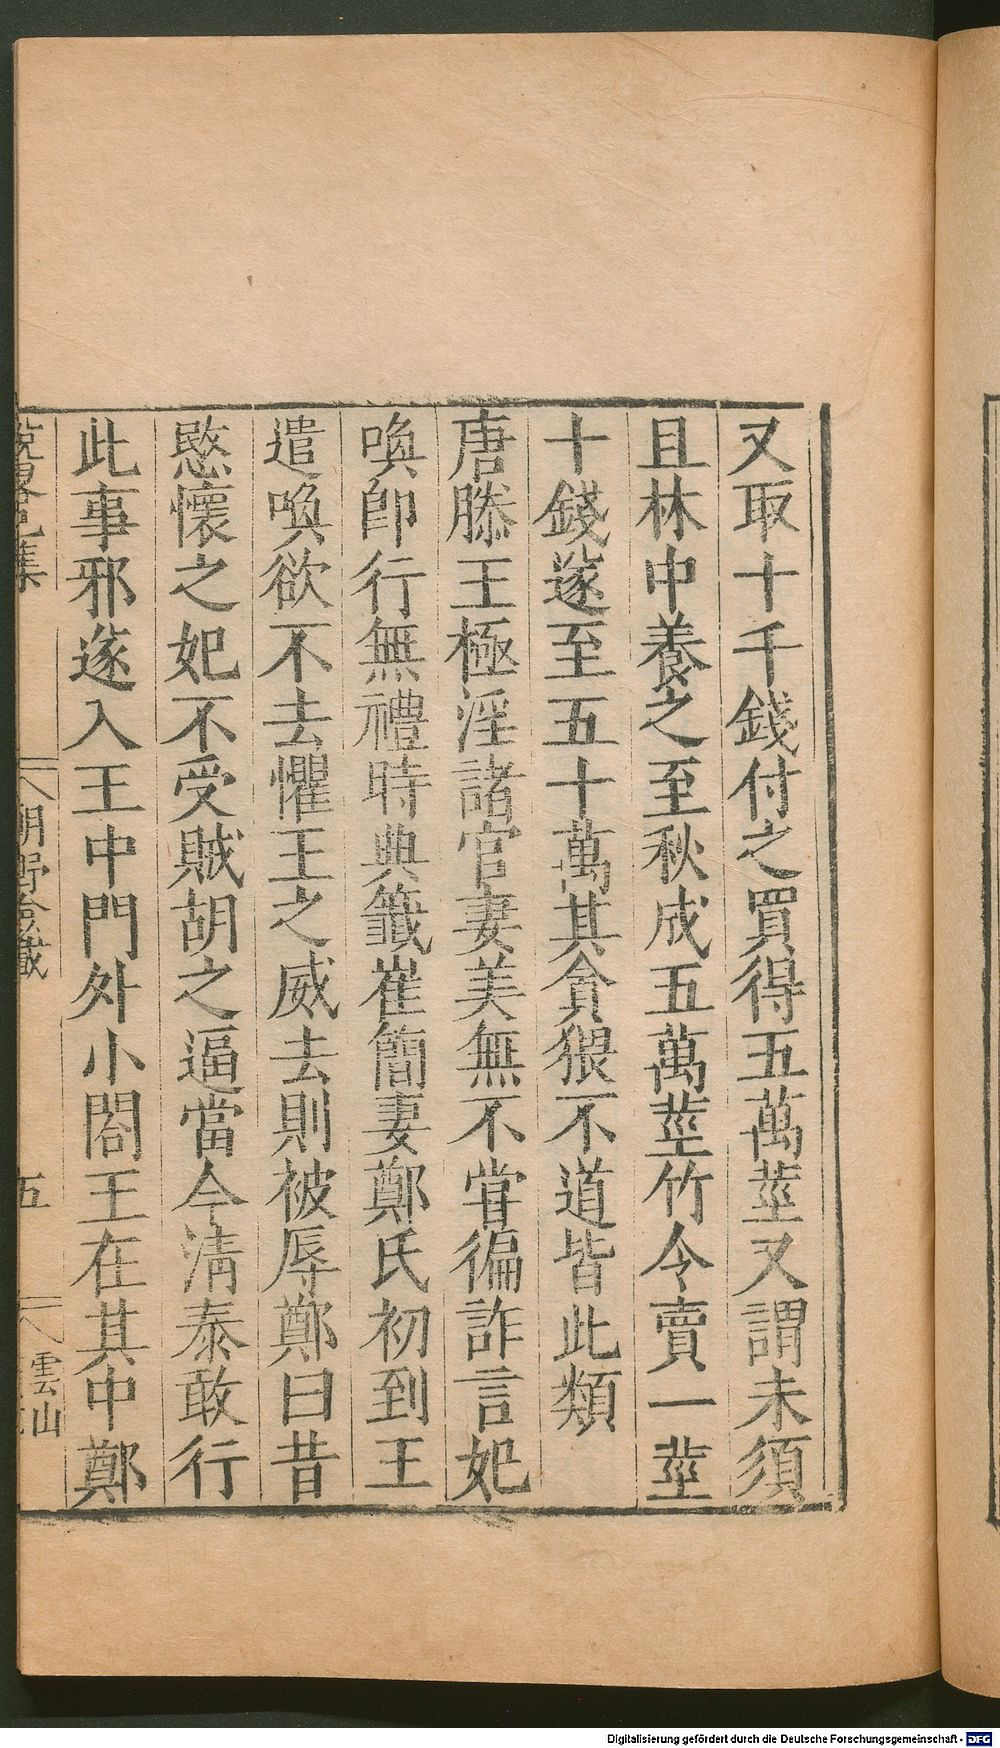 又取十千錢付之買得五萬莖又謂未須
且林中養之至秋成五萬莖竹令賣一莖
十錢遂至五十萬其貪猥不道皆此類
唐滕王極淫諸官妻美無不甞徧詐言妃
喚卽行無禮時典籤崔簡妻鄭氏初到王
遣喚欲不去懼王之威去則被辱鄭曰昔
愍懷之妃不受賊胡之逼當今淸泰敢行
此事邪遂入王中門外小閤王在其中鄭
說畧己集 朝野僉載 五 雲山
Digitalisierung gefördert durch die Deutsche Forschungsgemeinschaft - DFG